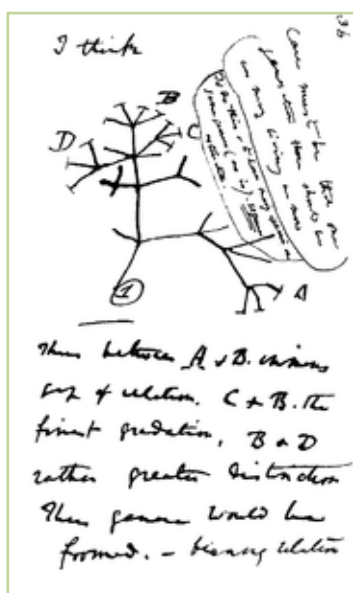 I think
36
B
D
C
Case must be that one
generation then should be
as many living as now
To do this & to have many species in
same genus (as is). requires
extinction.
1
A
Thus between A & B. immens
gap of relation. C & B. the
finest gradation, B & D
rather greater distinction
Thus genera would be
formed. — bearing relation